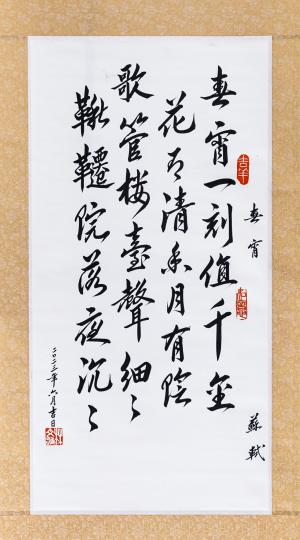 春宵 蘇軾
吉羊
春宵一刻值千金
花有清香月有陰
歌管楼臺聲細〻
鞦韆院落夜沉〻
二〇二三年六月吉日